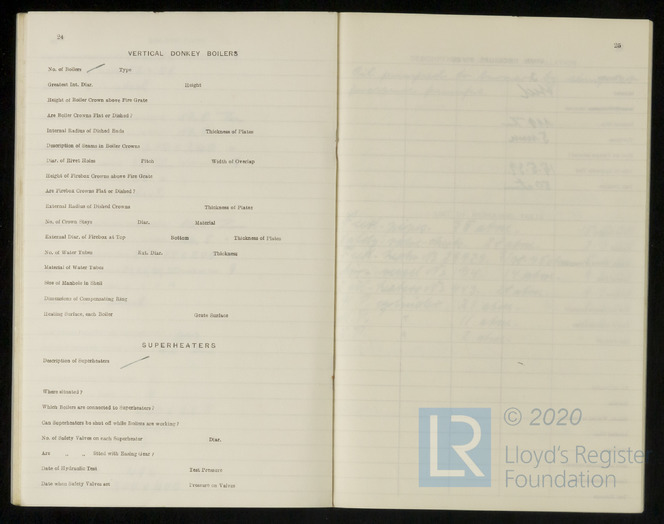 24
VERTICAL DONKEY BOILERS
No. of Boilers Type
Greatest Int. Diar. Height
Height of Boiler Crown above Fire Grate
Are Boiler Crowns Flat or Dished?
Internal Radius of Dished Ends Thickness of Plates
Description of Seams in Boiler Crowns
Diar. of Rivet Holes Pitch Width of Overlap
Height of Firebox Crowns above Fire Grate
Are Firebox Crowns Flat or Dished?
External Radius of Dished Crowns Thickness of Plates
No. of Crown Stays Diar. Material
External Diar. of Firebox at Top Bottom Thickness of Plates
No. of Water Tubes Ext. Diar. Thickness
Material of Water Tubes
Size of Manhole in Shell
Dimensions of Compensating Ring
Heating Surface, each Boiler Grate Surface
SUPERHEATERS
Description of Superheaters
Where situated?
Which Boilers are connected to Superheaters?
Can Superheaters be shut off while Boilers are working?
No. of Safety Valves on each Superheater Diar.
Are „ „ fitted with Easing Gear?
Date of Hydraulic Test Test Pressure
Date when Safety Valves set Pressure on Valves
25
LR © 2020
Lloyd's Register
Foundation